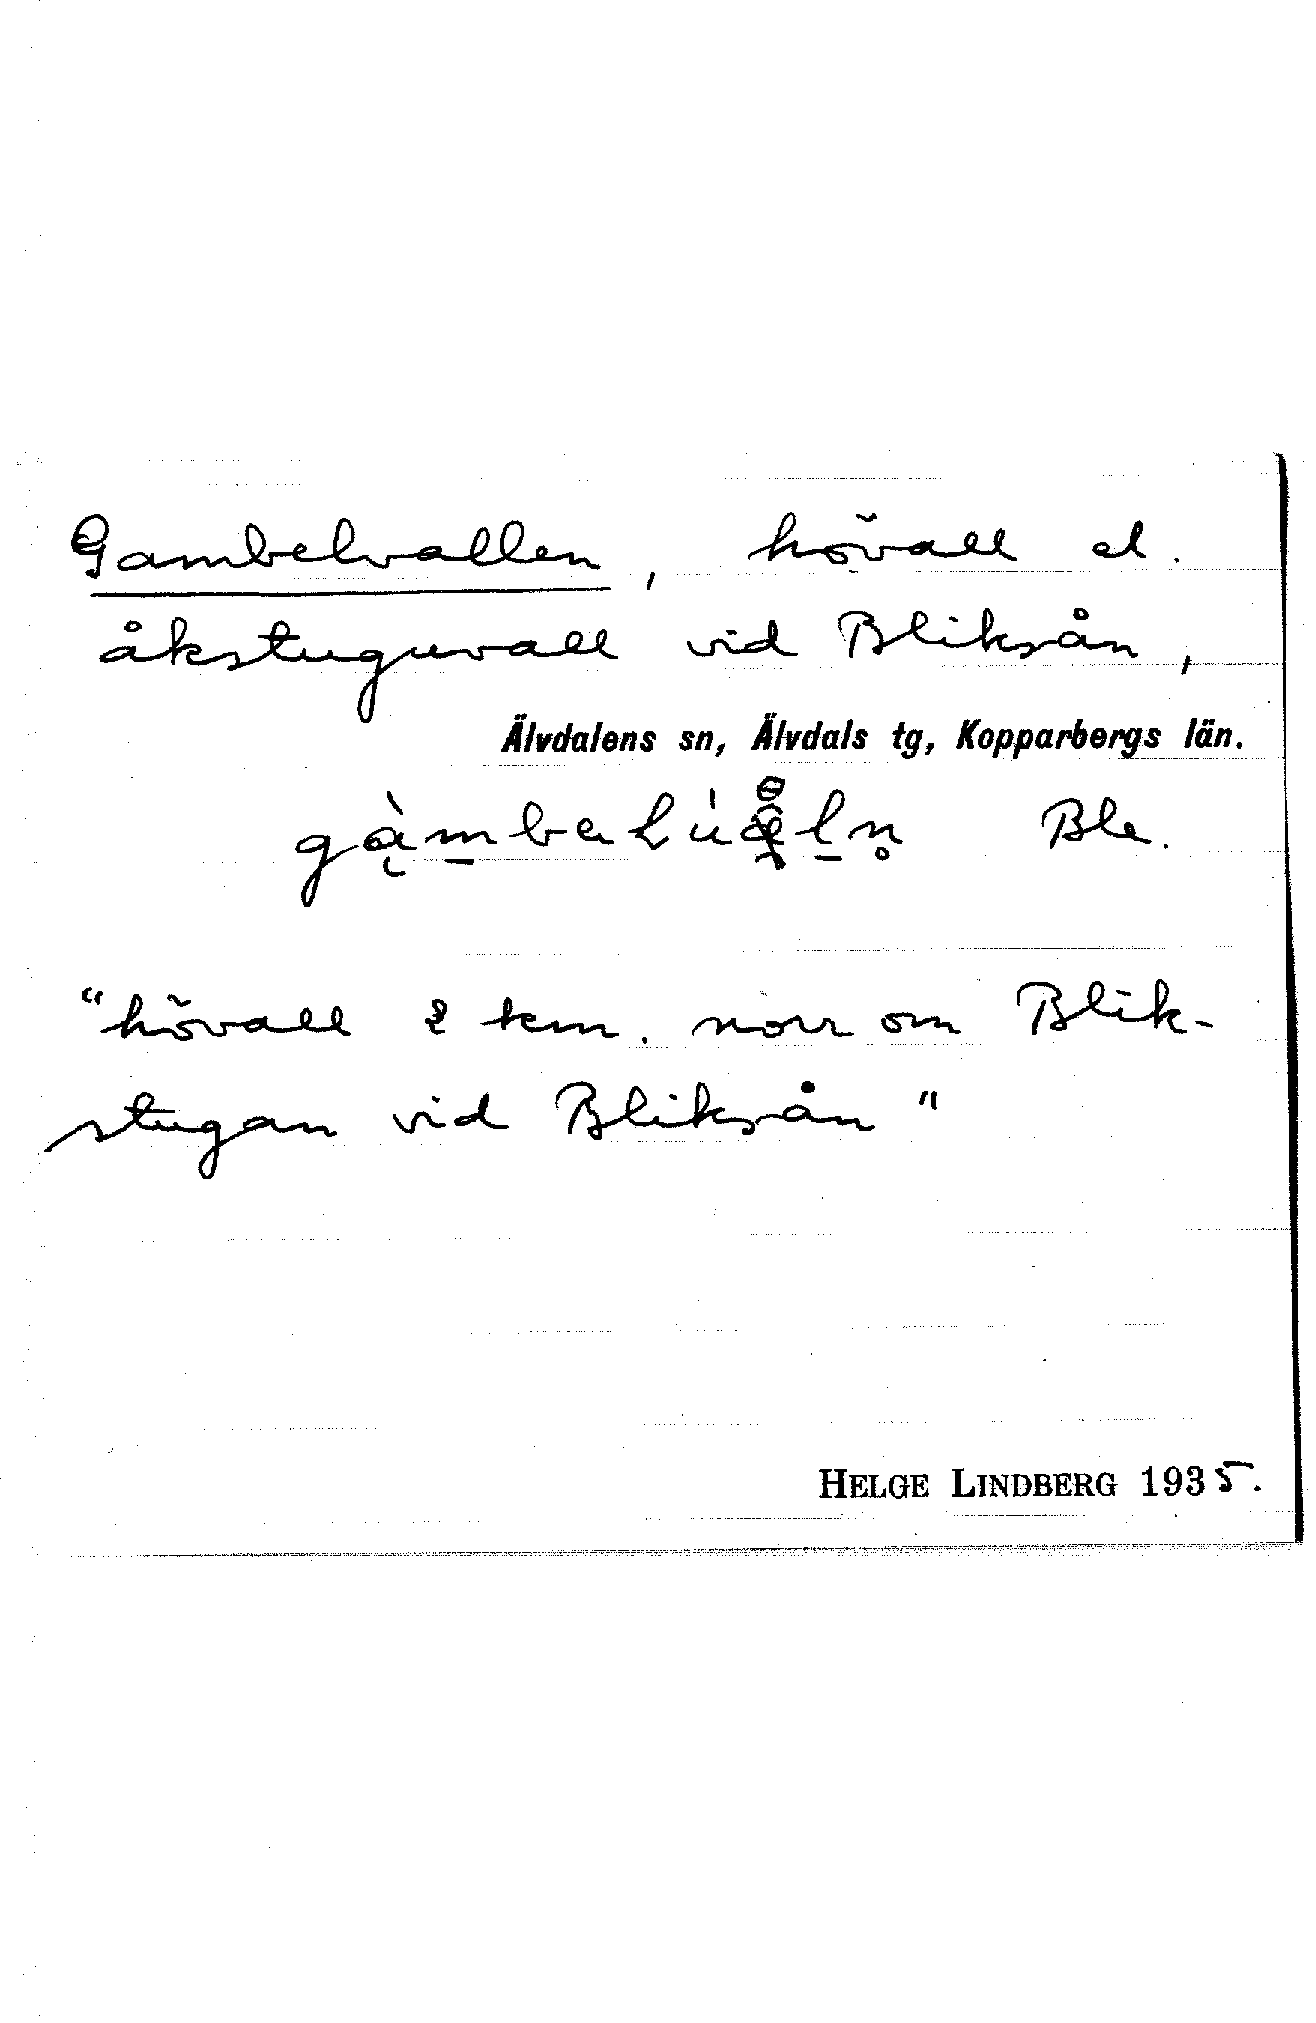 Gambelvallen, hövall el.
åkstuguvall vid Bliksån,
Älvdalens sn, Älvdals tg, Kopparbergs län.
Ble.
"hövall 2 km. norr om Blik-
stugan vid Bliksån"
HELGE LINDBERG 1935.